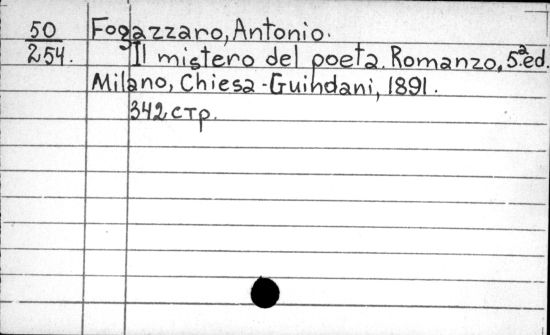 50 Fogazzaro, Antonio.
254. Il mistero del poeta. Romanzo, 5.ª ed.
Milano, Chiesa-Guindani, 1891.
342 стр.